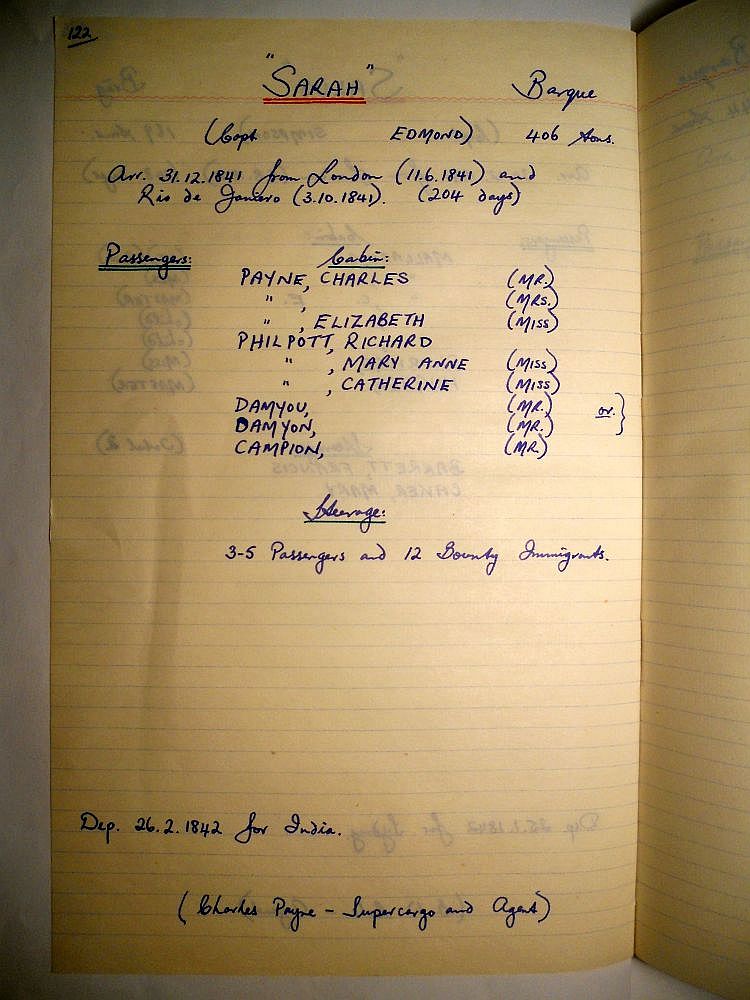 122
"SARAH" Barque
(Capt. EDMOND) 406 tons.
Arr. 31.12.1841 from London (11.6.1841) and
Rio de Janeiro (3.10.1841). (204 days)
Passengers: Cabin:
PAYNE, CHARLES (MR.)
" , (MRS.)
" , ELIZABETH (MISS)
PHILPOTT, RICHARD
" , MARY ANNE (MISS)
" , CATHERINE (MISS)
DAMYOU, (MR.)
or }
DAMYON, (MR.)
CAMPION, (MR)
Steerage:
3-5 Passengers and 12 Bounty Immigrants.
Dep. 26.2.1842 for India.
(Charles Payne - Supercargo and Agent)